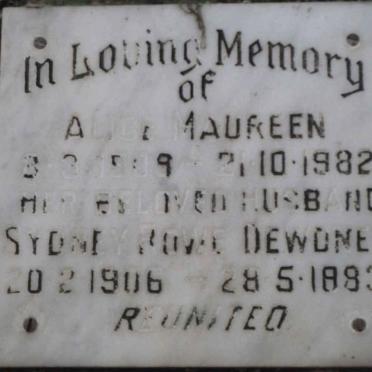 In Loving Memory
of
ALICE MAUREEN
21·10·1982
HER BELOVED HUSBAND
SYDNEY ROWE DEWDNE
20 2 1906 - 28·5·1883
REUNITED